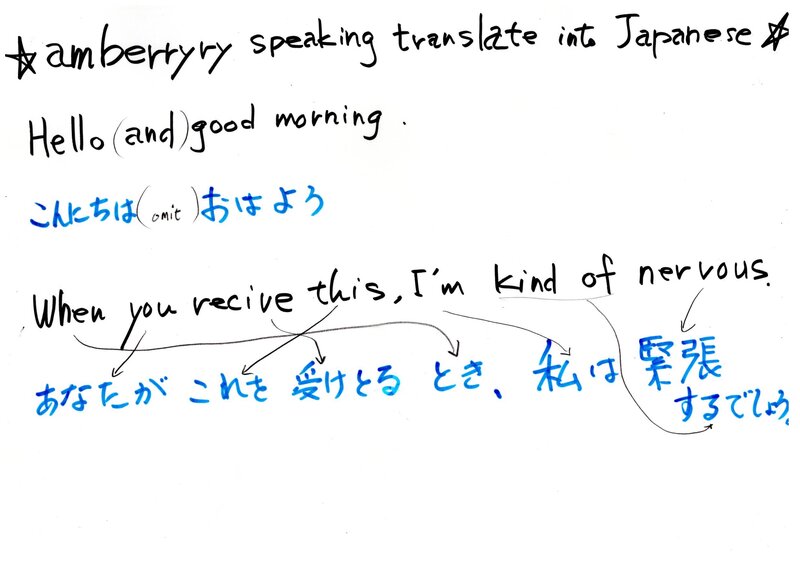 ☆amberryry speaking translate into Japanese☆
Hello (and) good morning.
こんにちは(omit)おはよう
When you recive this, I'm kind of nervous.
あなたが これを 受けとる とき、私は 緊張
するでしょう。